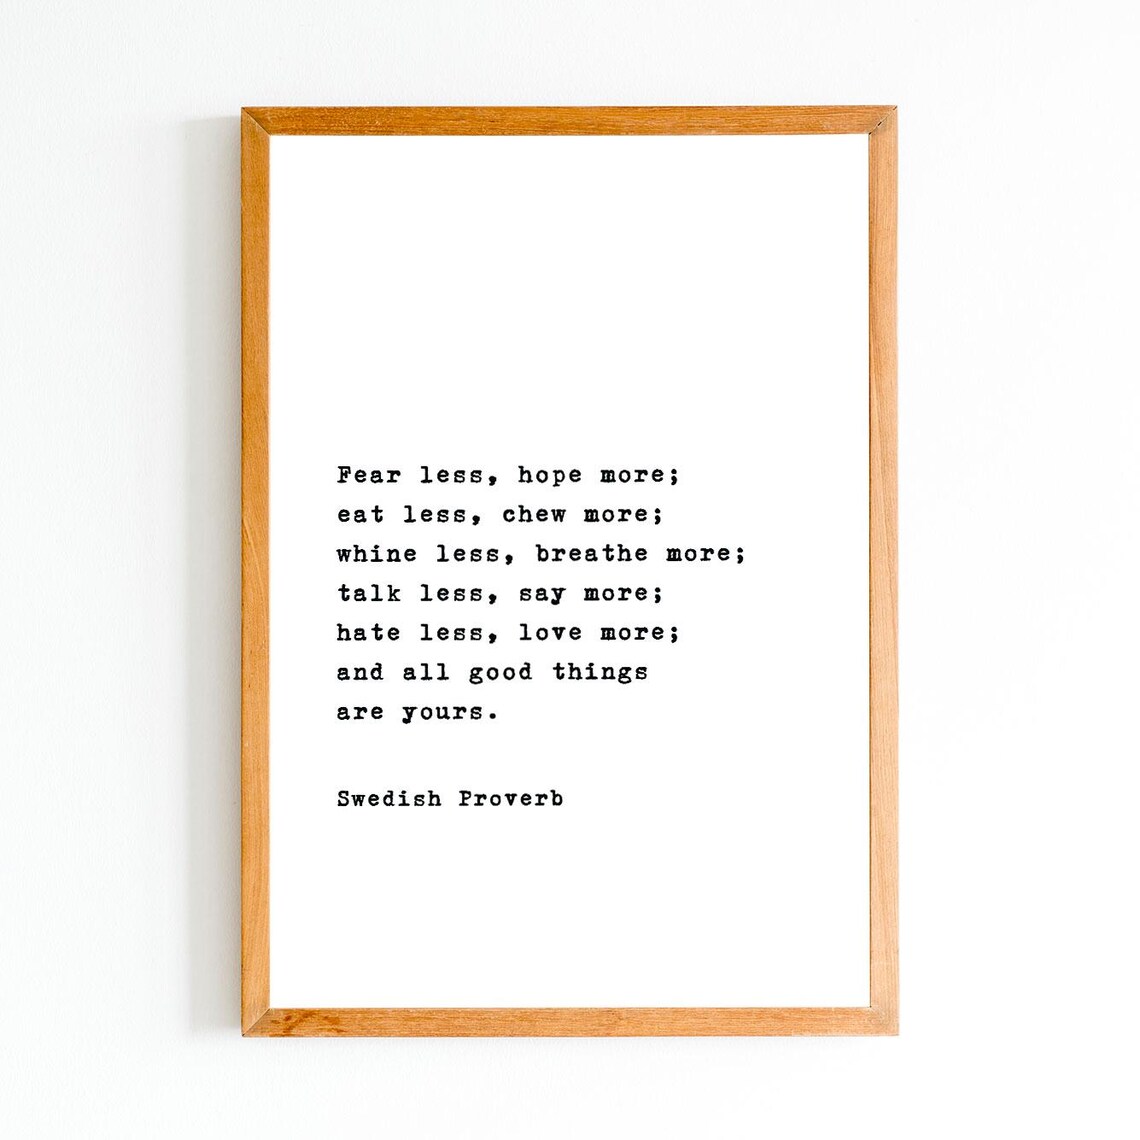 Fear less, hope more;
eat less, chew more;
whine less, breathe more;
talk less, say more;
hate less, love more;
and all good things
are yours.
Swedish Proverb